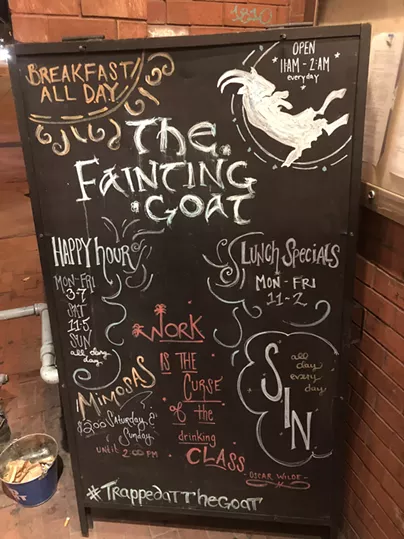 1810
BREAKFAST
ALL DAY
OPEN
11AM - 2AM
everyday
THE
FAINTING
GOAT
HAPPY hour
MON-FRI
3-7
SAT
11-5
SUN
all day
day
LUNCH SPECIALS
MON - FRI
11-2
WORK
IS THE
CURSE
of the
drinking
CLASS
- OSCAR WILDE -
SIN
all
day
every
day
MIMOSAS
$2.00 Saturday &
Sunday
until 2:00 PM
#TRAPPEDATTHEGOAT